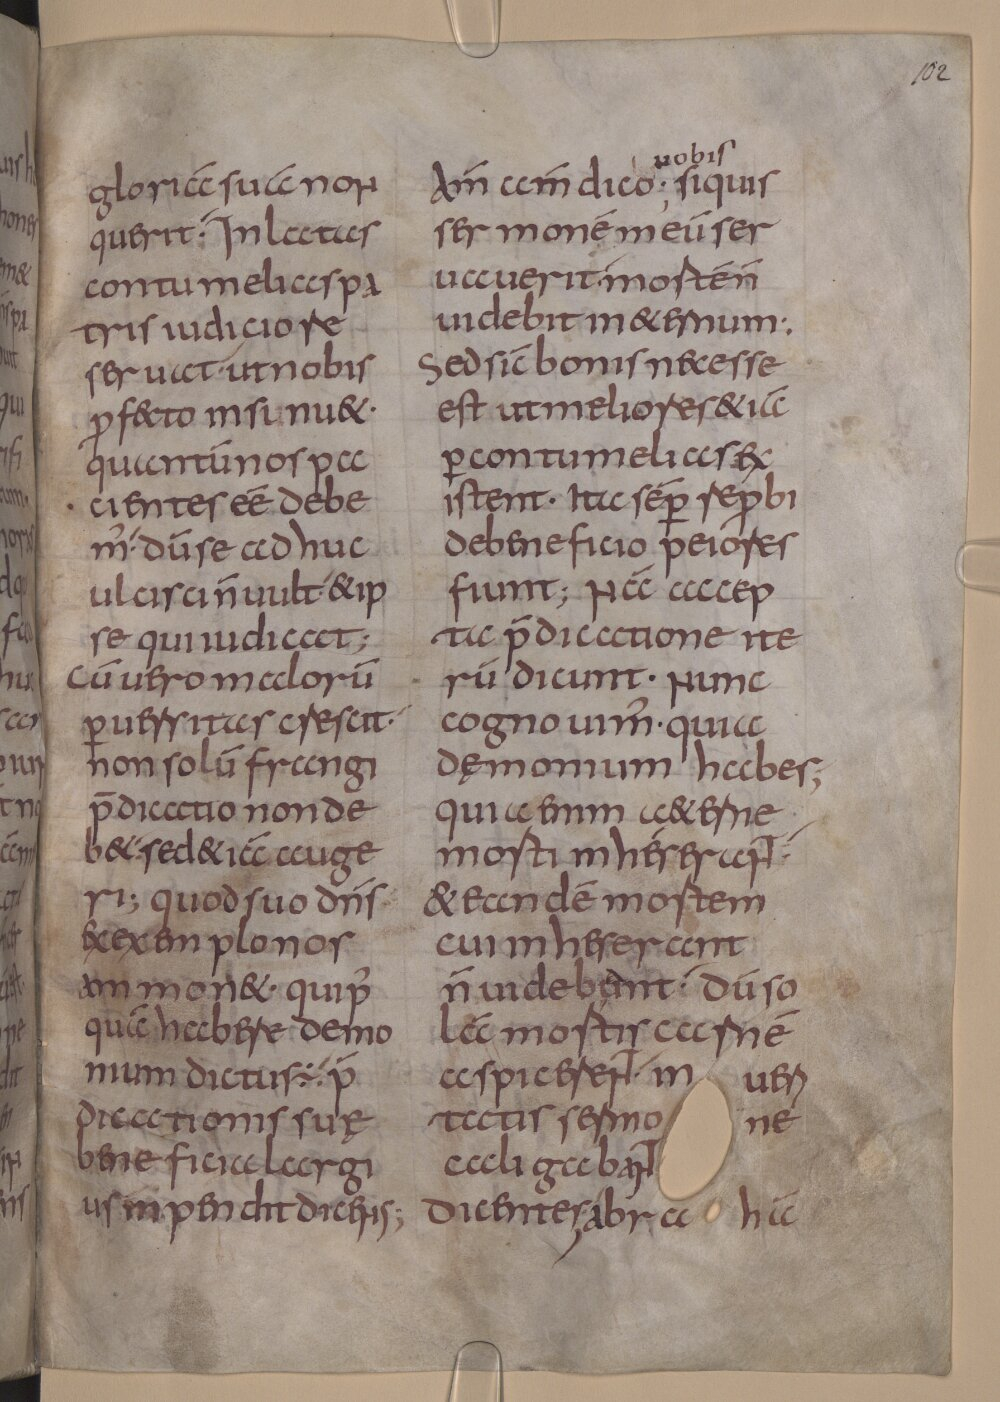 102
gloriā suā non
querit· Inlatas
contumelias pa
tris iudicio re
seruat· ut nobis
ꝓfecto insinu&·
quantū nos pa
cientes eē debe
mʼ· dū se adhuc
ulcisci n̄ uult· & ip
se qui iudicat;
Cū uero malorū
ꝑuersitas crescit·
non solū frangi
p̄dicatio non de
b&· sed & iā auge
ri; quod suo dn̄s
exemplo nos
ammon&· qui pʼ
quā habere demo
nium dictus:· p̄
dicationis suę
beneficia largi
us inpendit dicens;
Am̄ am̄ dico uobis; siquis
sermonē meū ser
uauerit· mortē n̄
uidebit in &ernum:,
Sed sič bonis necesse
est ut meliores & iā
ꝑ contumelias ex
istent· Ita sēꝑ reꝓbi
de beneficio peiores
fiunt; Nā accep
ta p̄dicatione ite
rū dicunt· Nunc
cognouimʼ· quia
dęmonium habes;
quia enim aeterne
morti inheserant·
& eandē mortem
cui inheserant
n̄ uidebant· Dū so
lā mortis carnē
aspicerent· in uer
tatis sermo ne
caligabant
dicentes, abra hā